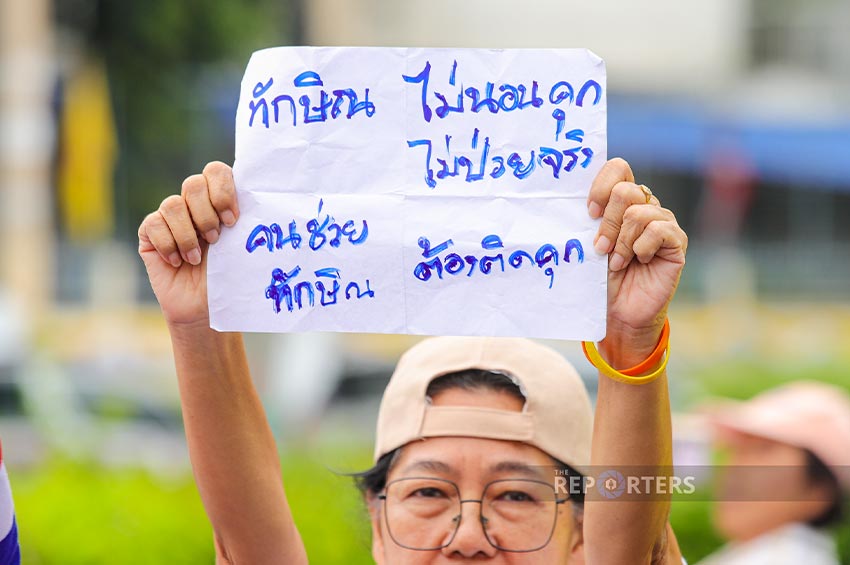 ทักษิณ ไม่นอนคุก
ไม่ป่วยจริง
คนช่วย ต้องติดคุก
ทักษิณ
THE REPORTERS